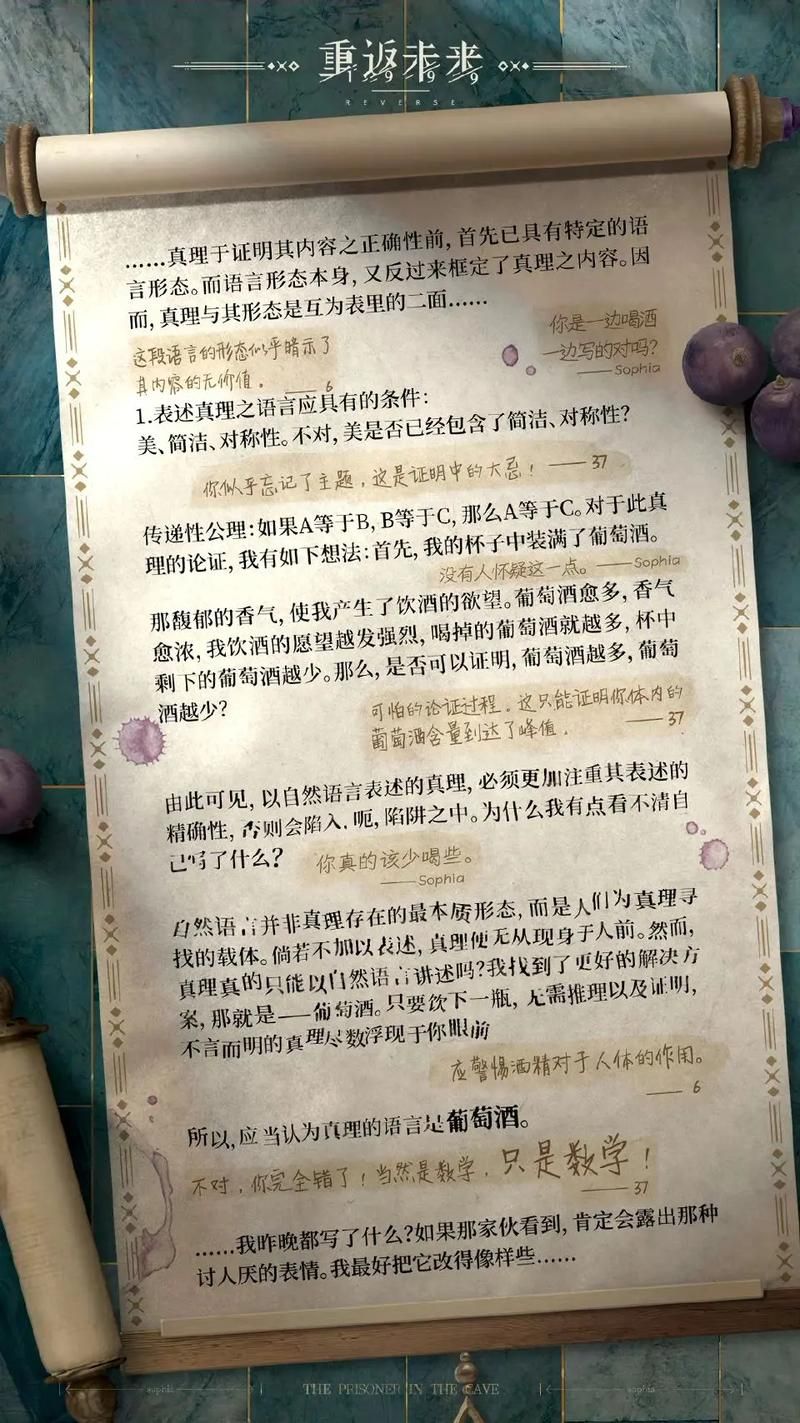 重返未来
1999
REVERSE
……真理于证明其内容之正确性前，首先已具有特定的语
言形态。而语言形态本身，又反过来框定了真理之内容。因
而，真理与其形态是互为表里的二面……
你是一边喝酒
一边写的对吗？
——Sophia
这段语言的形态似乎暗示了
其内容的无价值。 ——6
1.表述真理之语言应具有的条件：
美、简洁、对称性。不对，美是否已经包含了简洁、对称性？
你似乎忘记了主题，这是证明中的大忌！——37
传递性公理：如果A等于B，B等于C，那么A等于C。对于此真
理的论证，我有如下想法：首先，我的杯子中装满了葡萄酒。
没有人怀疑这一点。——Sophia
那馥郁的香气，使我产生了饮酒的欲望。葡萄酒愈多，香气
愈浓，我饮酒的愿望越发强烈，喝掉的葡萄酒就越多，杯中
剩下的葡萄酒越少。那么，是否可以证明，葡萄酒越多，葡萄
酒越少？
可怕的论证过程。这只能证明你体内的
葡萄酒含量到达了峰值。 ——37
由此可见，以自然语言表述的真理，必须更加注重其表述的
精确性，否则会陷入，呃，陷阱之中。为什么我有点看不清自
己写了什么？
你真的该少喝些。
——Sophia
自然语言并非真理存在的最本质形态，而是人们为真理寻
找的载体。倘若不加以表述，真理便无从现身于人前。然而，
真理真的只能以自然语言讲述吗？我找到了更好的解决方
案，那就是——葡萄酒。只要饮下一瓶，无需推理以及证明，
不言而明的真理尽数浮现于你眼前
应警惕酒精对于人体的作用。
——6
所以，应当认为真理的语言是葡萄酒。
不对，你完全错了！当然是数学，只是数学！
——37
……我昨晚都写了什么？如果那家伙看到，肯定会露出那种
讨人厌的表情。我最好把它改得像样些……
sophia THE PRISONER IN THE CAVE sophia